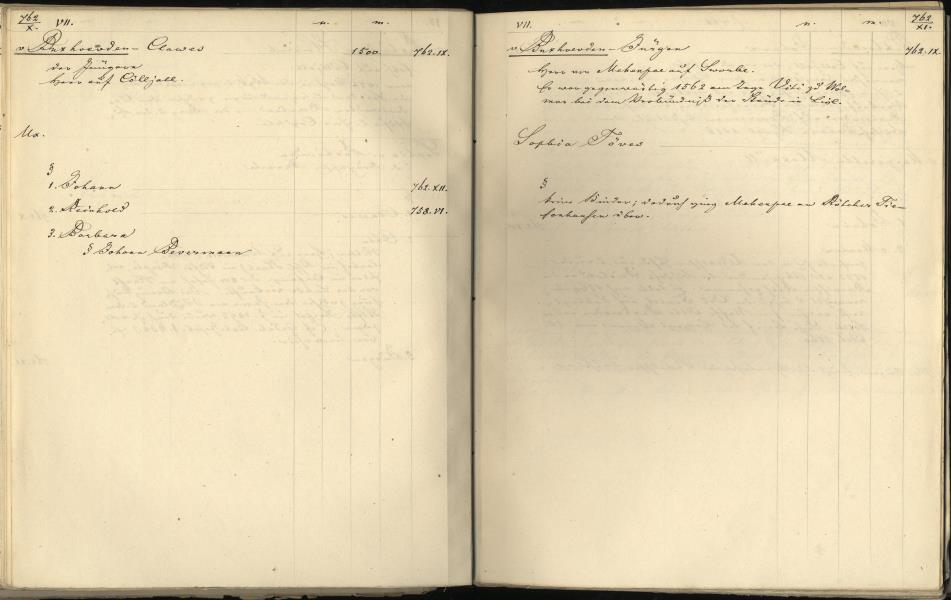 762/X. VII. n. m.
v. Buxhoevden - Clawes 1500. 762.IX.
der Jüngere
Herr auf Cölljall.
Ux.
§
1. Johann 762.XII.
2. Reinhold 758.VI.
3. Barbara
§ Johann Bevermann
VII. n. m. 762/XI.
v. Buxhoevden - Jürgen 762.IX.
Herr von Mekenpae auf Sworbe.
Er war gegenwärtig 1562 am Tage Viti zu Wol-
mar bei dem Verbündniß der Stände in Livl.
Sophia Töves
§
keine Kinder; dadurch ging Mekenpae an Tie-
senhausen über.